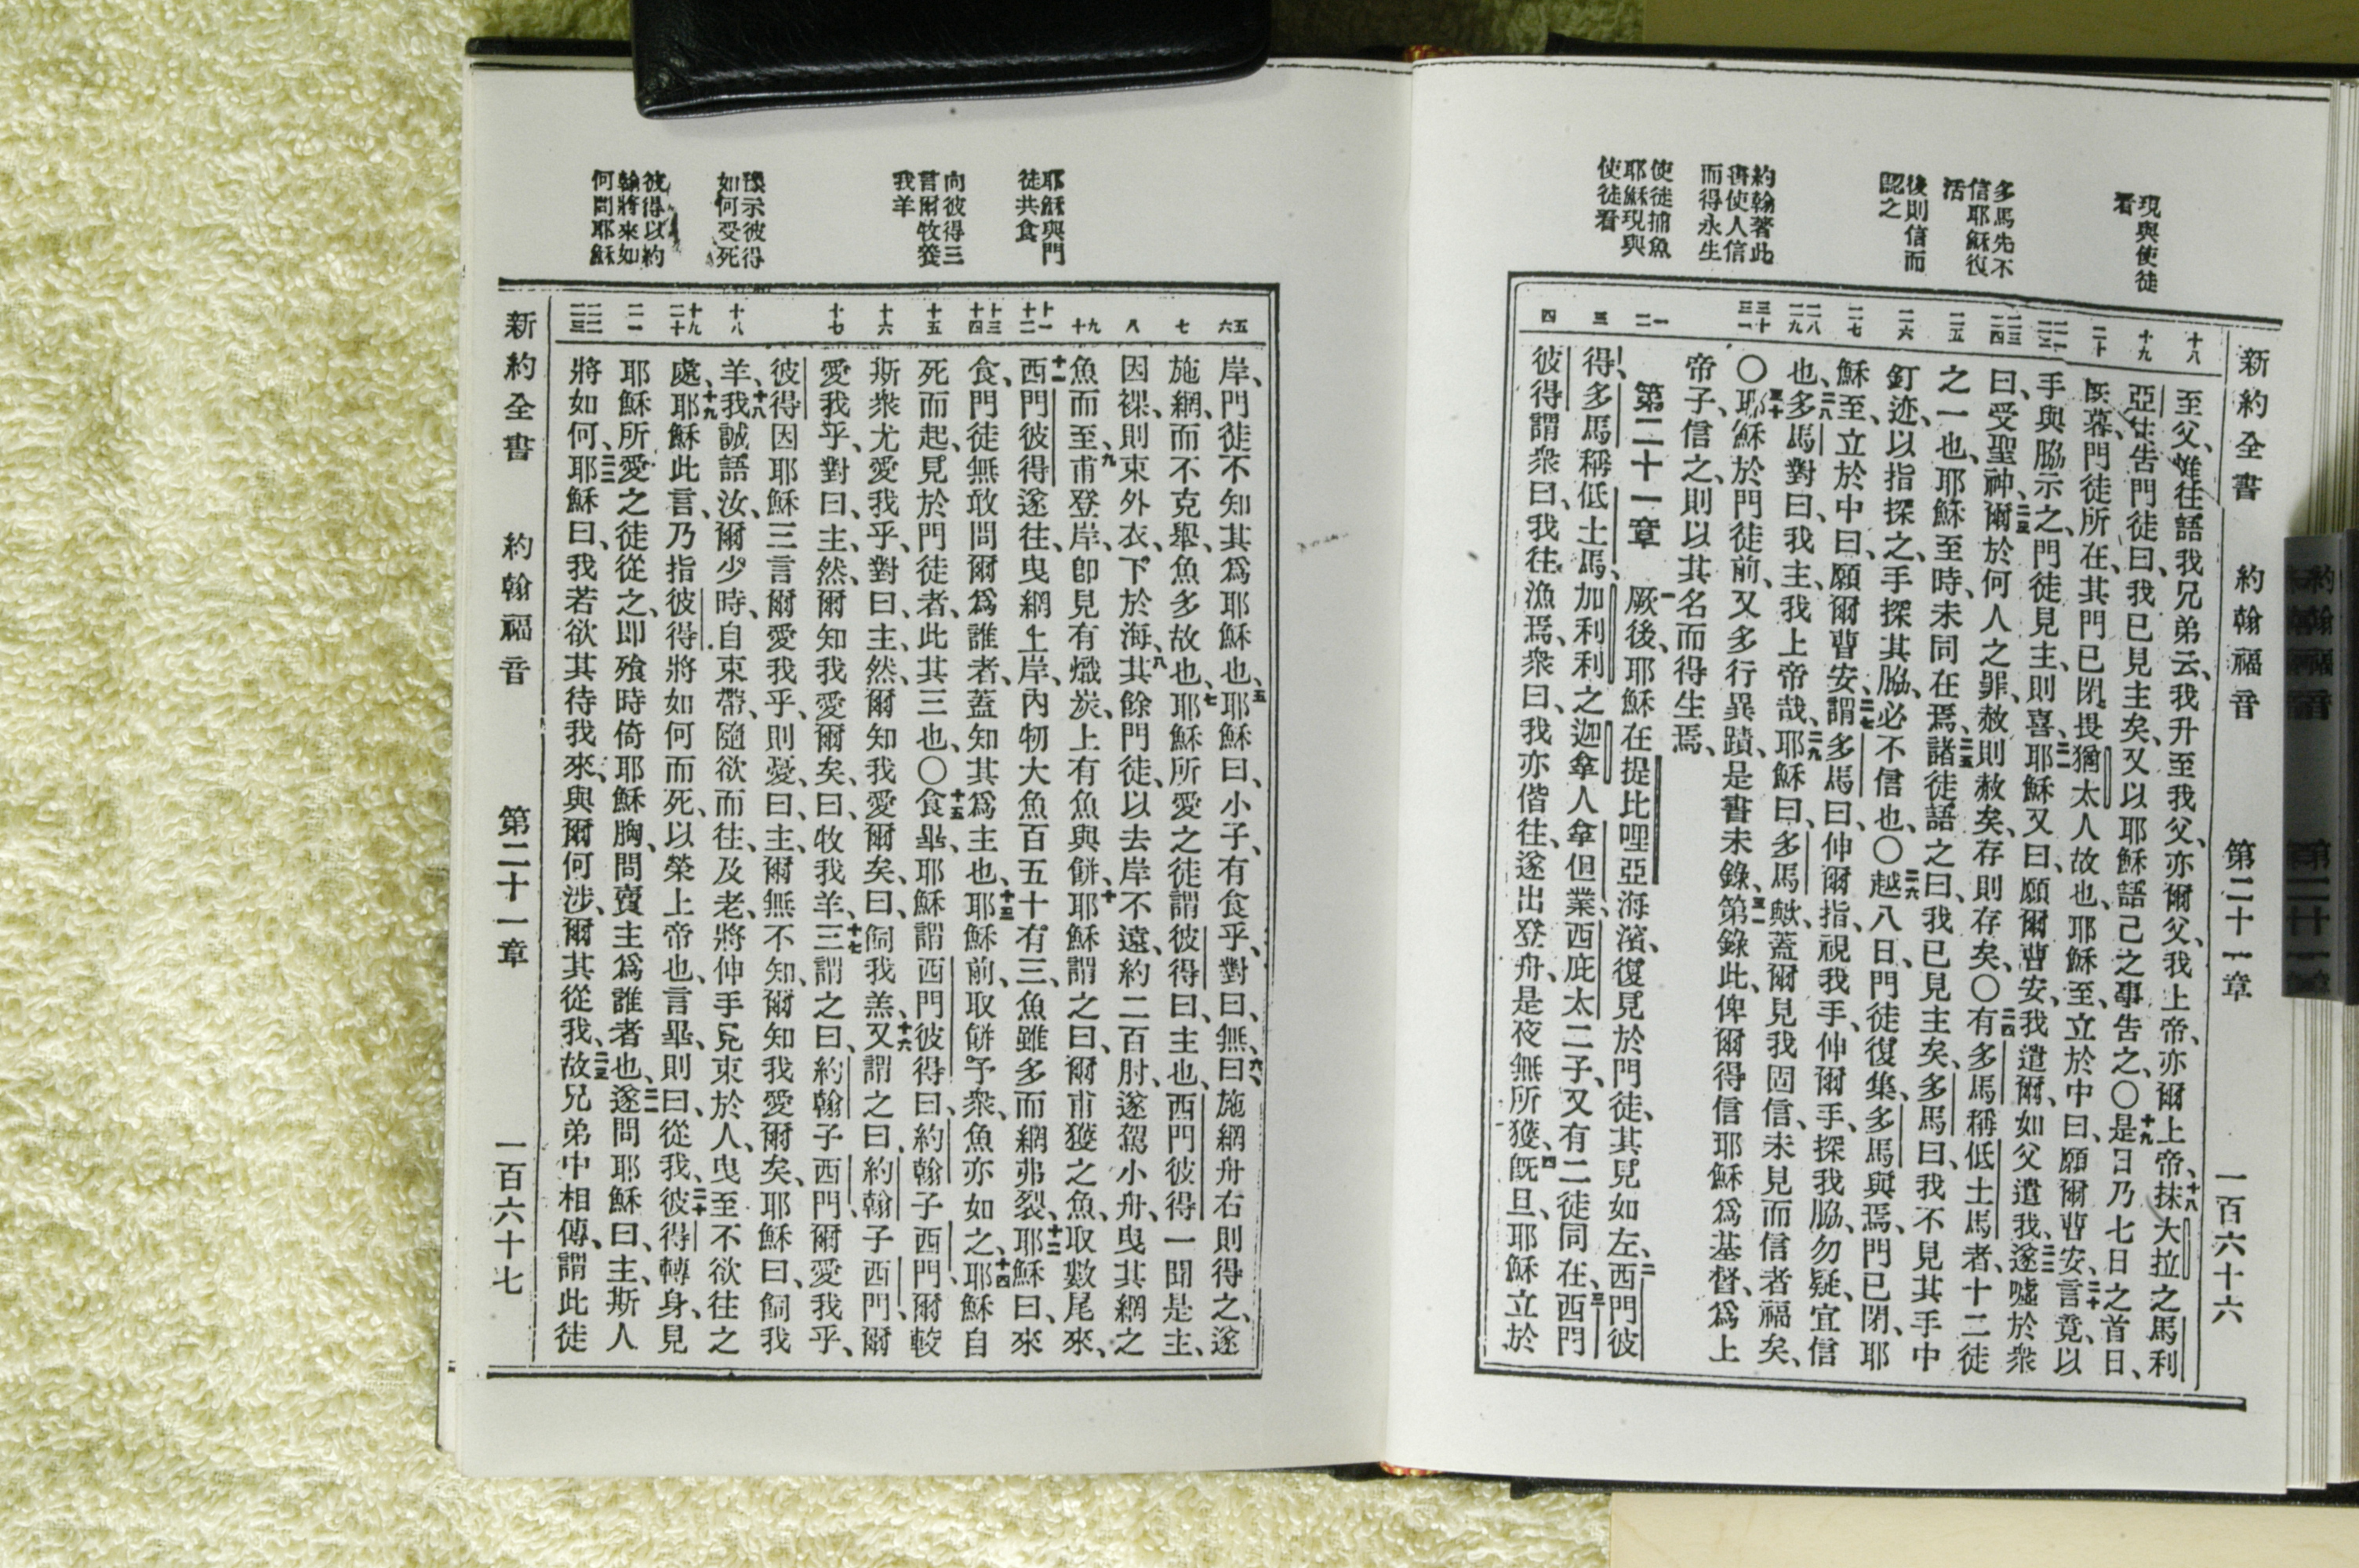 新約全書 約翰福音 第二十一章 一百六十六
現與使徒
看
多馬先不
信耶穌復
活
後則信而
認之
約翰著此
書使人信
而得永生
使徒捕魚
耶穌現與
使徒看
十八
十九
二十
二一 二二
二三 二四
二五
二六
二七
二八 二九
三十 三一
一 二
三
四
至父、惟往語我兄弟云、我升至我父、亦爾父、我上帝、亦爾上帝、十八抹大拉之馬利
亞往吿門徒曰、我已見主矣、又以耶穌語己之事吿之、○十九是日乃七日之首日、
旣暮、門徒所在、其門已閉、畏猶太人故也、耶穌至、立於中曰、願爾曹安、二十言竟、以
手與脇示之、門徒見主、則喜、二一耶穌又曰、願爾曹安、我遣爾、如父遣我、二二遂噓於衆
曰、受聖神、二三爾於何人之罪、赦則赦矣、存則存矣、○二四有多馬稱低土馬者、十二徒
之一也、耶穌至時、未同在焉、二五諸徒語之曰、我已見主矣、多馬曰、我不見其手中
釘迹、以指探之、手探其脇、必不信也、○二六越八日、門徒復集、多馬與焉、門已閉、耶
穌至、立於中曰、願爾曹安、二七謂多馬曰、伸爾指、視我手、伸爾手、探我脇、勿疑、宜信
也、二八多馬對曰、我主、我上帝哉、二九耶穌曰、多馬歟、蓋爾見我固信、未見而信者福矣、
○三十耶穌於門徒前、又多行異蹟、是書未錄、三一第錄此、俾爾得信耶穌爲基督、爲上
帝子、信之、則以其名而得生焉、
第二十一章 一厥後、耶穌在提比哩亞海濱、復見於門徒、其見如左、二西門彼
得、多馬稱低土馬、加利利之迦拿人拿但業、西庇太二子、又有二徒同在、三西門
彼得謂衆曰、我往漁焉、衆曰、我亦偕往、遂出登舟、是夜無所獲、四旣旦、耶穌立於
耶穌與門
徒共食
向彼得三
言爾牧養
我羊
豫示彼得
如何受死
彼得以約
翰將來如
何問耶穌
五 六
七
八
九 十
十一 十二
十三 十四
十五
十六
十七
十八
十九 二十
二一
二二 二三
岸、門徒不知其爲耶穌也、五耶穌曰、小子、有食乎、對曰、無、六曰、施網舟右則得之、遂
施網、而不克舉、魚多故也、七耶穌所愛之徒謂彼得曰、主也、西門彼得一聞是主、
因裸、則束外衣、下於海、八其餘門徒、以去岸不遠、約二百肘、遂駕小舟、曳其網之
魚而至、九甫登岸、卽見有熾炭、上有魚與餅、十耶穌謂之曰、爾甫獲之魚、取數尾來、
十一西門彼得遂往、曳網上岸、內牣大魚百五十有三、魚雖多而網弗裂、十二耶穌曰、來
食、門徒無敢問爾爲誰者、蓋知其爲主也、十三耶穌前、取餅予衆、魚亦如之、十四耶穌自
死而起、見於門徒者、此其三也、○十五食畢、耶穌謂西門彼得曰、約翰子西門、爾較
斯衆尤愛我乎、對曰、主、然、爾知我愛爾矣、曰、飼我羔、十六又謂之曰、約翰子西門、爾
愛我乎、對曰、主、然、爾知我愛爾矣、曰、牧我羊、十七三謂之曰、約翰子西門、爾愛我乎、
彼得因耶穌三言爾愛我乎、則憂、曰、主、爾無不知、爾知我愛爾矣、耶穌曰、飼我
羊、十八我誠語汝、爾少時、自束帶、隨欲而往、及老、將伸手見束於人、曳至不欲往之
處、十九耶穌此言、乃指彼得將如何而死、以榮上帝也、言畢、則曰、從我、二十彼得轉身、見
耶穌所愛之徒從之、即飧時倚耶穌胸、問賣主爲誰者也、二一遂問耶穌曰、主、斯人
將如何、二二耶穌曰、我若欲其待我來、與爾何涉、爾其從我、二三故兄弟中相傳、謂此徒
新約全書 約翰福音 第二十一章 一百六十七